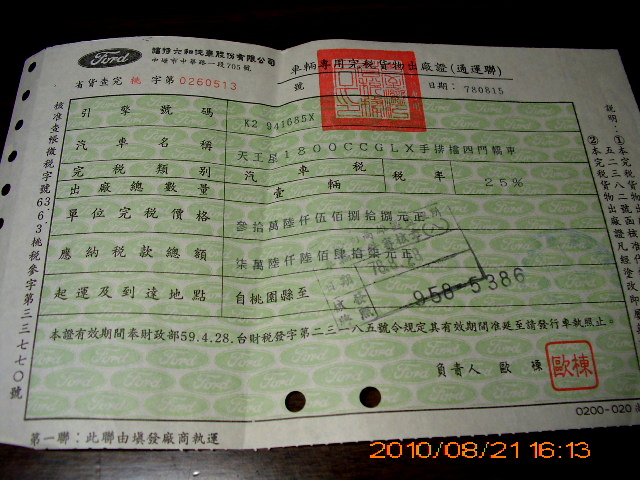 Ford
福特六和汽車股份有限公司
中壢市中華路一段705號
車輛專用完稅貨物出廠證(通運聯)
省貨查完 桃 字第0260513
號
日期: 780815
引擎號碼
K2 941685X
汽車名稱
天王星1800CCGLX手排擋四門轎車
完稅類別
汽車稅
稅率
25%
出廠總數量
壹輛
單位完稅價格
參拾萬陸仟伍佰捌拾捌元正
應納稅款總額
柒萬陸仟陸佰肆拾柒元正
起運及到達地點
自桃園縣至
958-5386
本證有效期間奉財政部59.4.28.台財稅發字第二三一八五號令規定其有效期間准延至請發行車執照止。
負責人 歐 棟
歐棟
0200-020
第一聯:此聯由填發廠商執運
核准查帳徵稅字號63.6.3.桃稅參字第三三七七〇號
說明:
2010/08/21 16:13